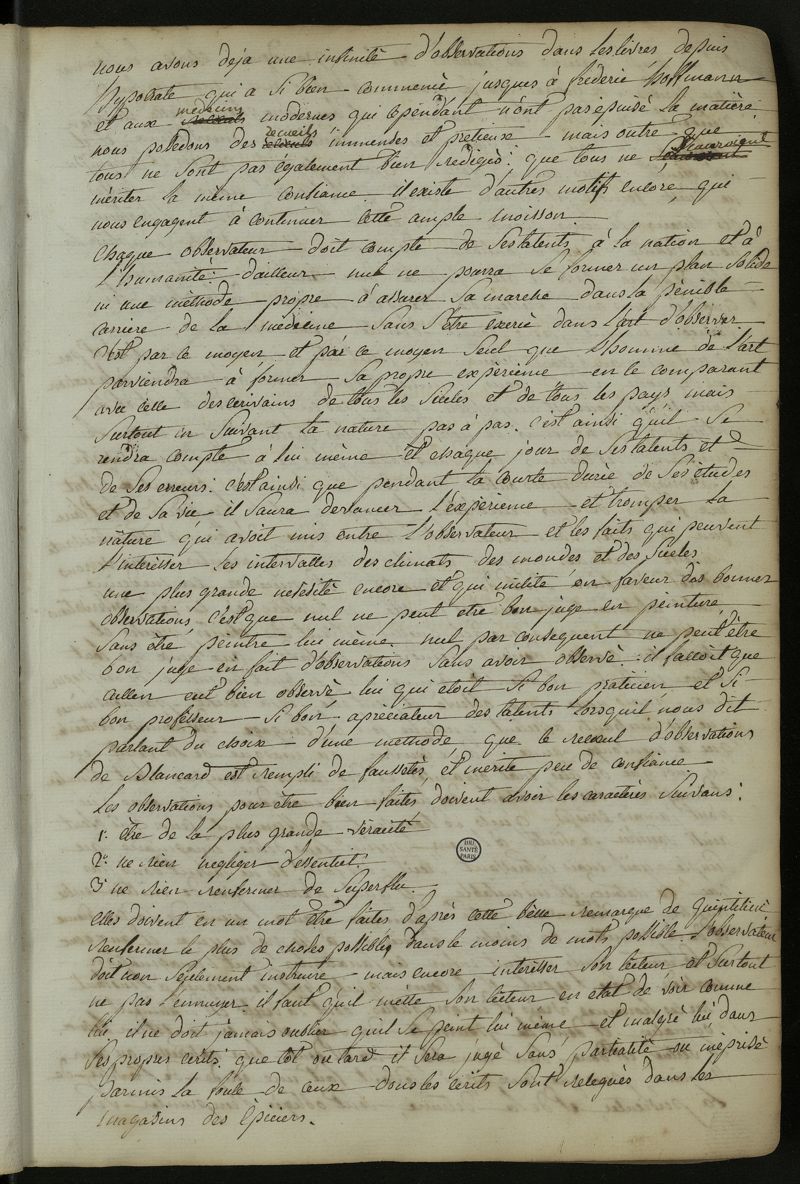 nous avons deja une infinité d'observations dans les livres depuis
hypocrate qui a si bien commencé jusques à frederic hoffmann
et aux médecins modernes qui cependant n'ont pas epuisé la matière
nous possedons des recueils immenses et pretieux mais outre que
tous ne sont pas également bien redigés: que tous ne sçauroient
mériter la même confiance il existe d'autres motifs encore qui
nous engagent à continuer cette ample moisson.
chaque observateur doit compte de ses talents à la nation et à
l'humanité: d'ailleur nul ne pourra se former un plan solide
ni une méthode propre à assurer sa marche dans la pénible
carriere de la médecine sans s'être exercé dans l'art d'observer
c'est par ce moyen et par ce moyen seul que l'homme de l'art
parviendra à former sa propre expérience en le comparant
avec celle des ecrivains de tous les siecles et de tous les pays mais
surtout en suivant la nature pas à pas. c'est ainsi qu'il se
rendra compte à lui même et chaque jour de ses talents et
de ses erreurs: c'est ainsi que pendant la courte durée de ses etudes
et de sa vie il saura devancer l'éxpérience et tromper la
nature qui avoit mis entre l'observateur et les faits qui peuvent
l'intéresser les intervalles des climats des mondes et des siecles
une plus grande nesessité encore et qui milite en faveur des bonnes
observations c'est que nul ne peut etre bon juge en peinture
sans être peintre lui même nul par consequent ne peut être
bon juge en fait d'observations sans avoir observé. il falloit que
cullen eut bien observé lui qui etoit si bon praticien et si
bon professeur si bon apréciateur des talents lorsquil nous dit
parlant du choix d'une methode que le receuil d'observations
de Blancard est rempli de faussetés et merite peu de confiance
Les observations pour être bien faites doivent avoir les caractères suivans:
1.° être de la plus grande véracité
2.° ne rien negliger d'essentiel.
3.° ne rien renfermer de superflu.
BIU SANTÉ PARIS
elles doivent en un mot être faites d'après cette belle remarque de Quintilien
renfermer le plus de choses possibles dans le moins de mots possible l'observateur
doit non seulement instruire mais encore intéresser son lecteur et surtout
ne pas l'ennuyer. il faut qu'il mette son lecteur en etat de voir comme
lui il ne doit jamais oublier quil se peint lui même et malgré lui dans
ses propres ecrits. que tôt ou tard il sera jugé sans partialité ou méprisé
parmis la foule de ceux dont les ecrits sont relegués dans les
magasins des épiciers.